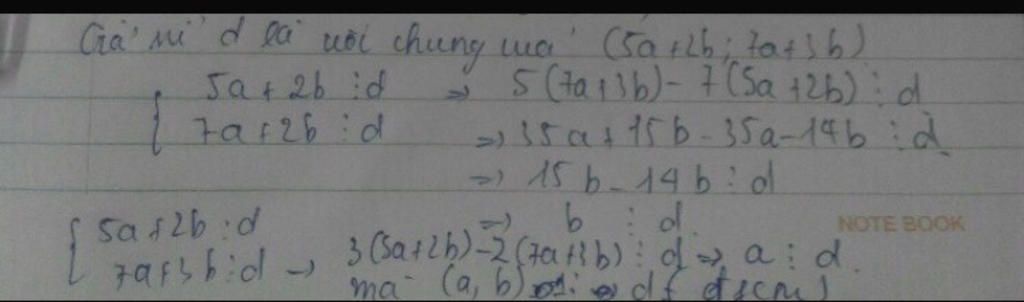 Giả sử d là ước chung của (5a+2b; 7a+3b)
{ 5a+2b ⋮ d => 5(7a+3b)-7(5a+2b) ⋮ d
7a+2b ⋮ d => 35a+15b-35a-14b ⋮ d
=> 15b-14b ⋮ d
{ 5a+2b ⋮ d => b ⋮ d
NOTE BOOK
7a+3b ⋮ d -> 3(5a+2b)-2(7a+3b) ⋮ d => a ⋮ d.
mà (a, b)